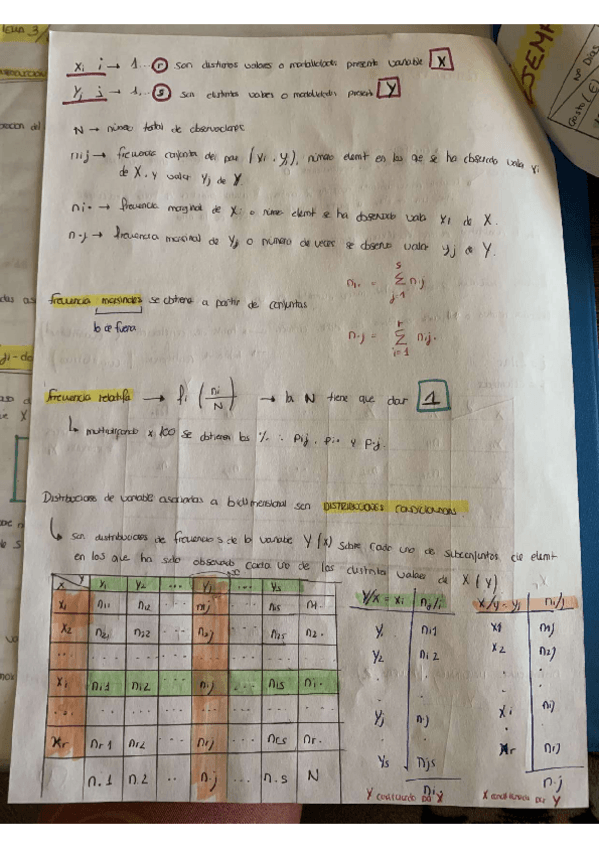 Xi i → 1... r son distintos valores o modalidades presente variable X
Yj j → 1... s son distintos valores o modalidades presente Y
N → número total de observaciones
nij → frecuencia conjunta del par (xi, yj), número elemt en los que se ha observado valor xi
de X y valor Yj de Y.
ni• → frecuencia marginal de Xi o número elemt se ha observado valor xi de X.
n.j → frecuencia marginal de Yj o número de veces se observa valor yj de Y.
ni. = s Σ j=1 nij
frecuencia marginales se obtiene a partir de conjuntas
lo de fuera
n.j = r Σ i=1 nij.
frecuencia relatifa → fi (ni/N) → la N tiene que dar 1
↳ multiplicando x 100 se obtienen los % : Pij, Pi• y P•j.
Distribuciones de variable asociadas a bidimensional son DISTRIBUCIONES CONDICIONADAS.
↳ son distribuciones de frecuencias de la variable Y (X) sobre cada uno de subconjuntos de elemt
en los que ha sido observado cada uno de los distintos valores de X (Y)
X Y y1 y2 ... yj ... ys
x1 n11 n12 ... nij ... n1s n1.
x2 n21 n22 ... n2j ... n2s n2.
... ... ... ... ... ... ...
xi ni1 ni2 ... nij ... nis ni.
... ... ... ... ... ...
xr nr1 nr2 ... nrj ... nrs nr.
n.1 n.2 .. n.j ... n.s N
Y/X = xi nj/i
y1 ni1
y2 ni2
yj nij
ys njs
ni.
Y condicionado por X
X/y = yj ni/j
x1 n1j
x2 n2j
xi nij
xr nrj
n.j
X condicionado por Y
Nº Días
Gasto (€)